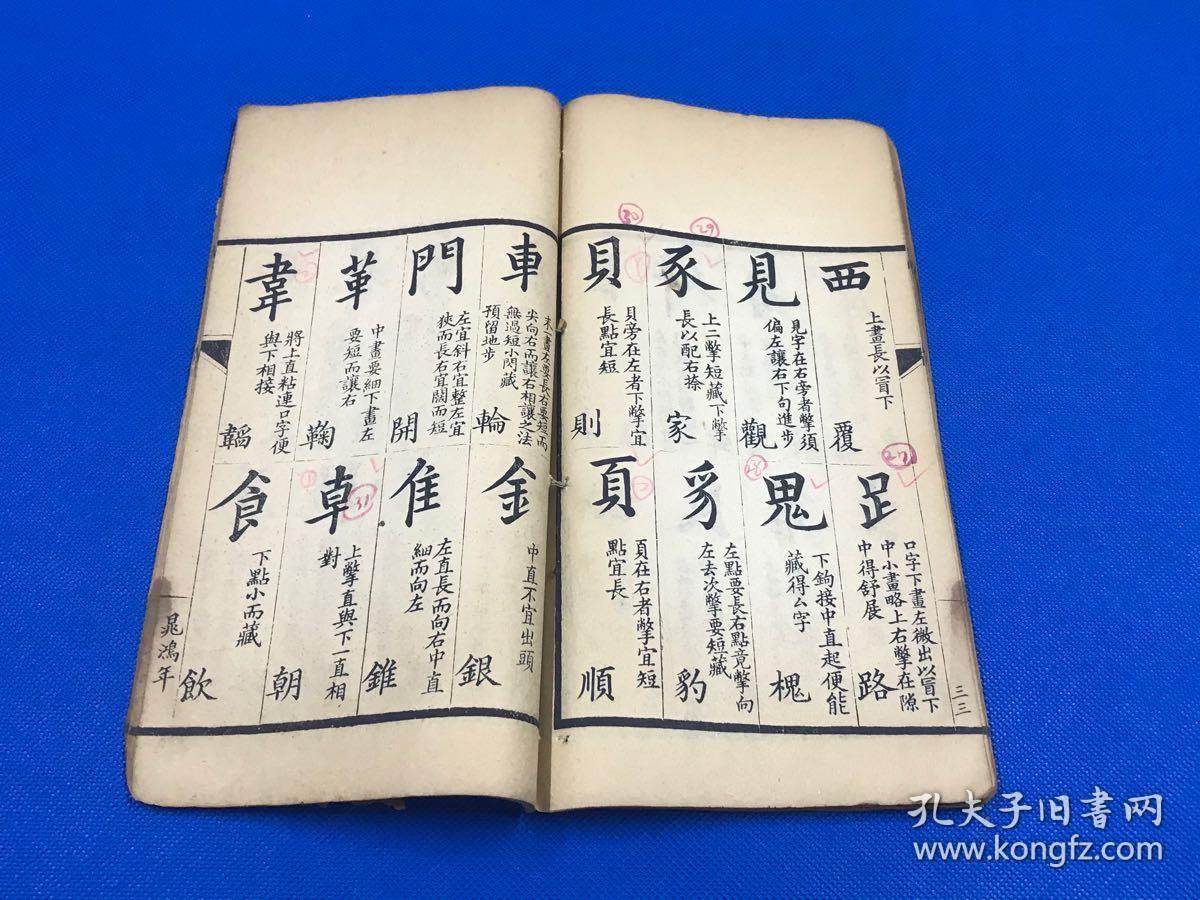 西
上畫長以冒下
覆
見
見字在右旁者撇須
偏左讓右下句進步
觀
豕
上二撇短藏下撇
長以配右捺
家
貝
貝旁在左者下撇宜
長點宜短
則
足
口字下畫左微出以冒下
中小畫略上右撇在隙
中得舒展
路
鬼
下鉤接中直起便能
藏得厶字
槐
豸
左點要長右點竟撇向
左去次撇要短藏
豹
頁
頁在右者撇宜短
點宜長
順
三三
車
末一畫左要長右要短而
尖向右而讓右相讓之法
無過短小閃藏
預留地步
輪
門
左宜斜右宜整左宜
狹而長右宜闊而短
開
革
中畫要細下畫左
要短而讓右
鞠
韋
將上直粘連口字便
與下相接
韜
金
中直不宜出頭
銀
隹
左直長而向右中直
細而向左
錐
卓
上撇直與下一直相
對
朝
食
下點小而藏
飲
晁鴻年
30
29
28
27
31
孔夫子旧书网
www.kongfz.com